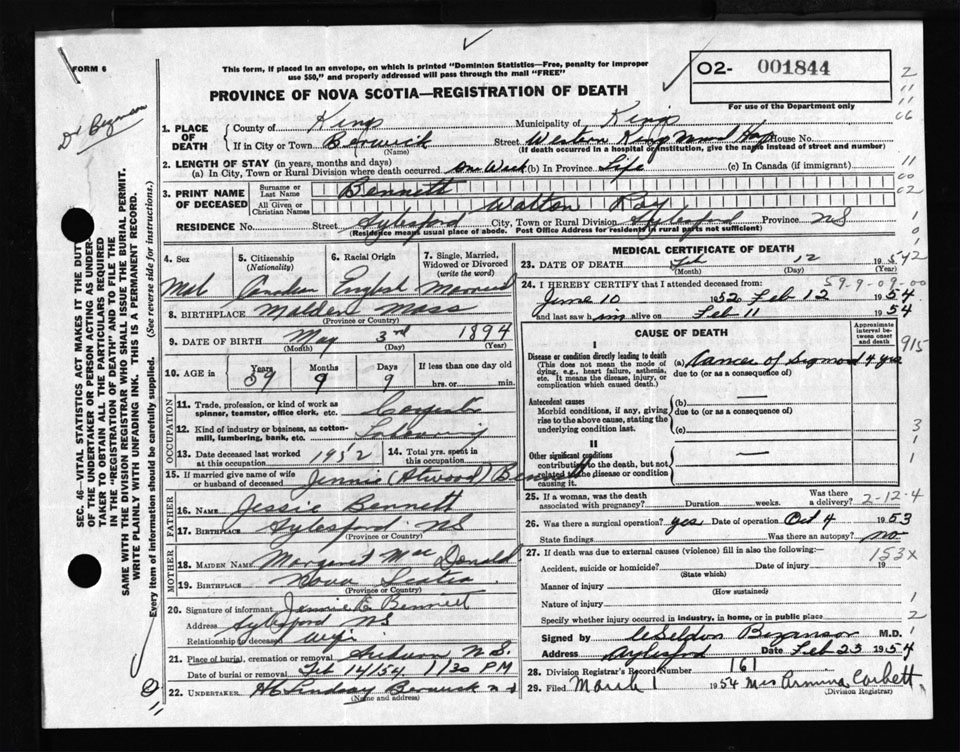 FORM 6
This form, if placed in an envelope, on which is printed "Dominion Statistics—Free, penalty for improper
use $50," and properly addressed will pass through the mail "FREE"
PROVINCE OF NOVA SCOTIA—REGISTRATION OF DEATH
O2- 001844
For use of the Department only
Dr Bezanson
1. PLACE OF DEATH
County of Kings Municipality of Kings
If in City or Town Berwick Street Western Kings Meml Hosp House No.
(Name) (If death occurred in a hospital or institution, give the name instead of street and number)
2. LENGTH OF STAY (in years, months and days)
(a) In City, Town or Rural Division where death occurred On Week (b) In Province Life (c) In Canada (if immigrant)
3. PRINT NAME OF DECEASED
Surname or Last Name Bennett
All Given or Christian Names Walton Ray
RESIDENCE No. Street Aylesford City, Town or Rural Division Aylesford Province NS
(Residence means usual place of abode. Post Office Address for residents in rural parts not sufficient)
4. Sex
5. Citizenship (Nationality)
6. Racial Origin
7. Single, Married, Widowed or Divorced (write the word)
Mal Canadian English Married
8. BIRTHPLACE Malden Mass
(Province or Country)
9. DATE OF BIRTH May 3rd 1894
(Month) (Day) (Year)
10. AGE in Years Months Days If less than one day old
59 9 9 hrs. or min.
OCCUPATION
11. Trade, profession, or kind of work as
spinner, teamster, office clerk, etc.
12. Kind of industry or business, as cotton-
mill, lumbering, bank, etc.
13. Date deceased last worked at this occupation 1952 14. Total yrs. spent in this occupation
15. If married give name of wife or husband of deceased Jennie (Atwood) Bennett
FATHER
16. NAME Jessie Bennett
17. BIRTHPLACE Aylesford NS
(Province or Country)
MOTHER
18. MAIDEN NAME Margaret Mac Donald
19. BIRTHPLACE Nova Scotia
(Province or Country)
20. Signature of informant Jennie E Bennett
Address Aylesford NS
Relationship to deceased Wife
21. Place of burial, cremation or removal Auburn N.S.
Date of burial or removal Feb 14/54 1/30 PM
22. UNDERTAKER Lindsay Berwick
(Name and address)
MEDICAL CERTIFICATE OF DEATH
23. DATE OF DEATH Feb 12 1954
(Month) (Day) (Year)
24. I HEREBY CERTIFY that I attended deceased from:
59-9-09-00
June 10 1952 to Feb 12 1954
and last saw him alive on Feb 11 1954
CAUSE OF DEATH
Approximate interval between onset and death
I
Disease or condition directly leading to death
(This does not mean the mode of dying, e.g., heart failure, asthenia, etc. It means the disease, injury, or complication which caused death.)
(a) Cancer of Sigmoid 4 yrs
due to (or as a consequence of)
915
Antecedent causes
Morbid conditions, if any, giving rise to the above cause, stating the underlying condition last.
(b) —
due to (or as a consequence of)
(c)
II
Other significant conditions
contributing to the death, but not related to the disease or condition causing it.
—
25. If a woman, was the death associated with pregnancy? Duration weeks. Was there a delivery?
2-12-4
26. Was there a surgical operation? yes Date of operation Oct 4 1953
State findings Was there an autopsy? no
27. If death was due to external causes (violence) fill in also the following:—
153x
Accident, suicide or homicide? Date of injury 19
(State which)
Manner of injury
(How sustained)
Nature of injury
Specify whether injury occurred in industry, in home, or in public place
Signed by Bezanson M.D.
Address Aylesford Date Feb 23 1954
28. Division Registrar's Record Number 161
29. Filed March 1 1954 Mrs Armina Corbett
(Division Registrar)
SEC. 46—VITAL STATISTICS ACT MAKES IT THE DUTY
OF THE UNDERTAKER OR PERSON ACTING AS UNDER-
TAKER TO OBTAIN ALL THE PARTICULARS REQUIRED
IN THE "REGISTRATION OF DEATH" AND TO FILE THE
SAME WITH THE DIVISION REGISTRAR WHO SHALL ISSUE THE BURIAL PERMIT.
WRITE PLAINLY WITH UNFADING INK. THIS IS A PERMANENT RECORD.
Every item of information should be carefully supplied. (See reverse side for instructions.)